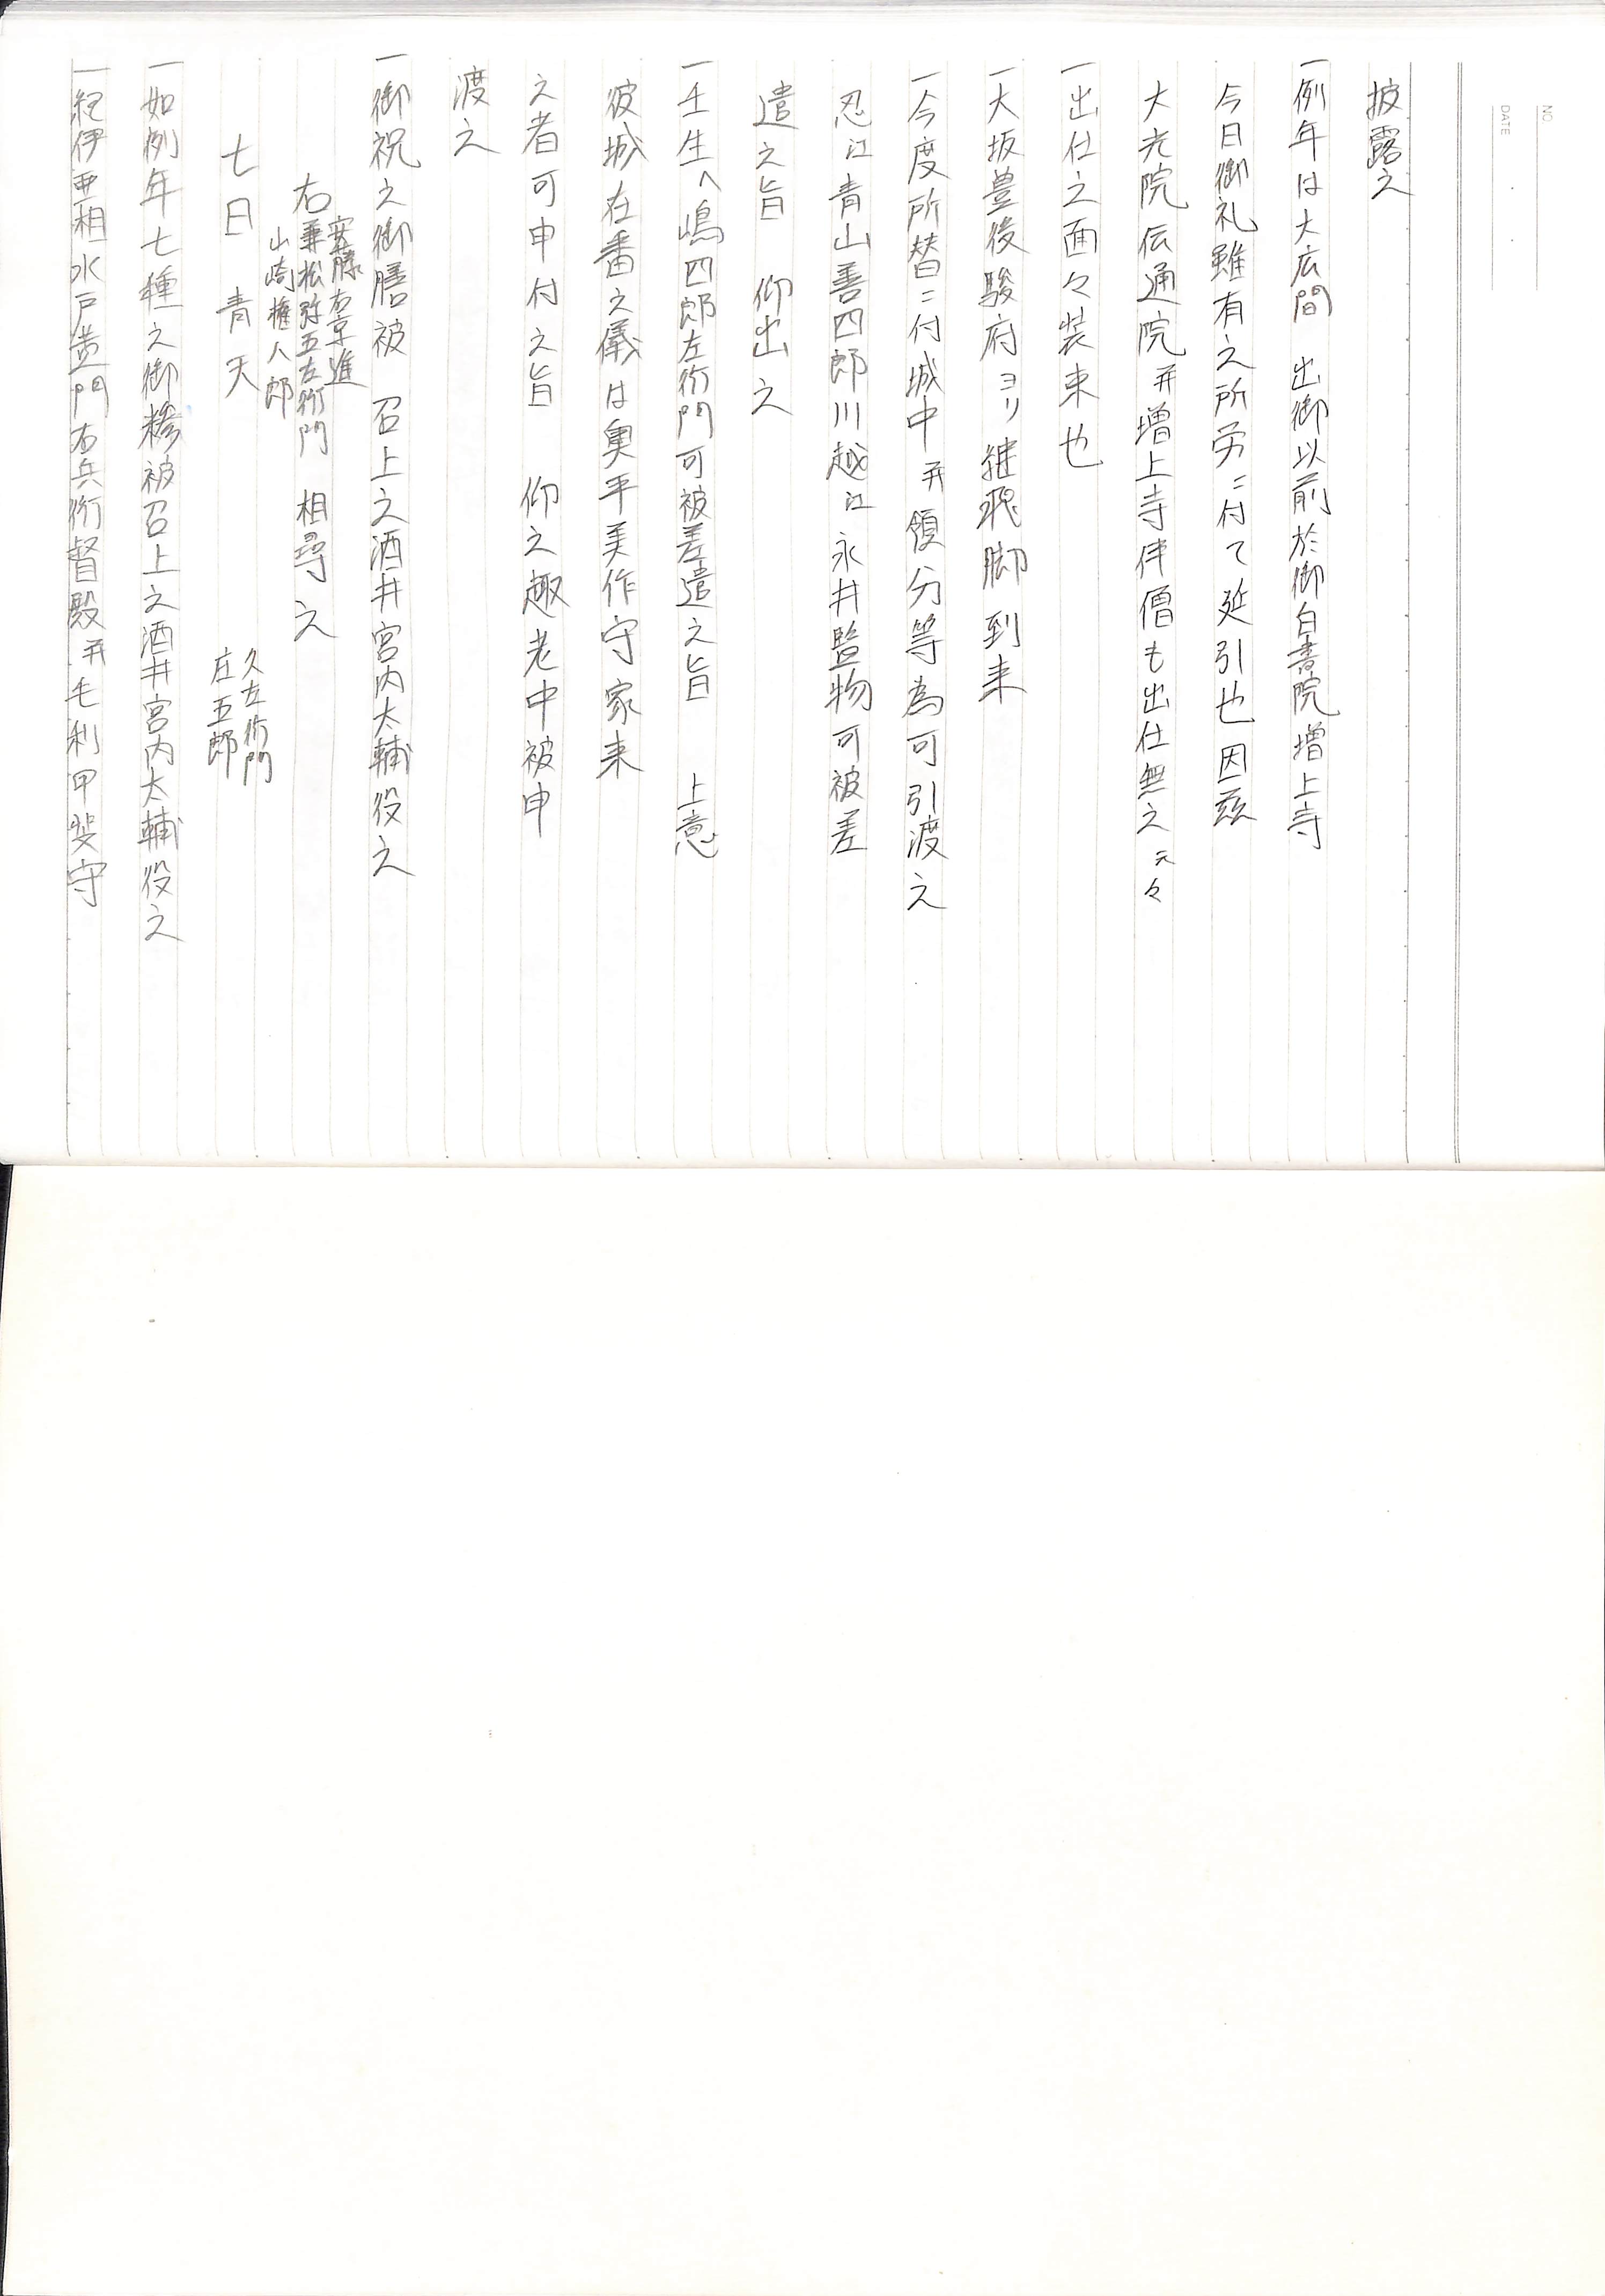 NO.
DATE
披露之
一例年は大広間 出御以前於御白書院増上寺
今日御礼雖有之所労ニ付て延引也因茲
大光院伝通院并増上寺伴僧も出仕無之云々
一出仕之面々装束也
一大坂豊後駿府ヨリ継飛脚到来
一今度所替ニ付城中并領分等為可引渡之
忍江青山善四郎川越江永井監物可被差
遣之旨 仰出之
一壬生へ嶋四郎左衛門可被差遣之旨 上意
彼城在番之儀は奥平美作守家来
之者可申付之旨 仰之趣老中被申
渡之
一御祝之御膳被 召上之酒井宮内太輔役之
安藤右京進
右兼松弥五左衛門 相尋之
山崎権八郎
七日 青天
久左衛門
庄五郎
一如例年七種之御糁被召上之酒井宮内太輔役之
一紀伊亜相水戸黄門右兵衛督殿并毛利甲斐守